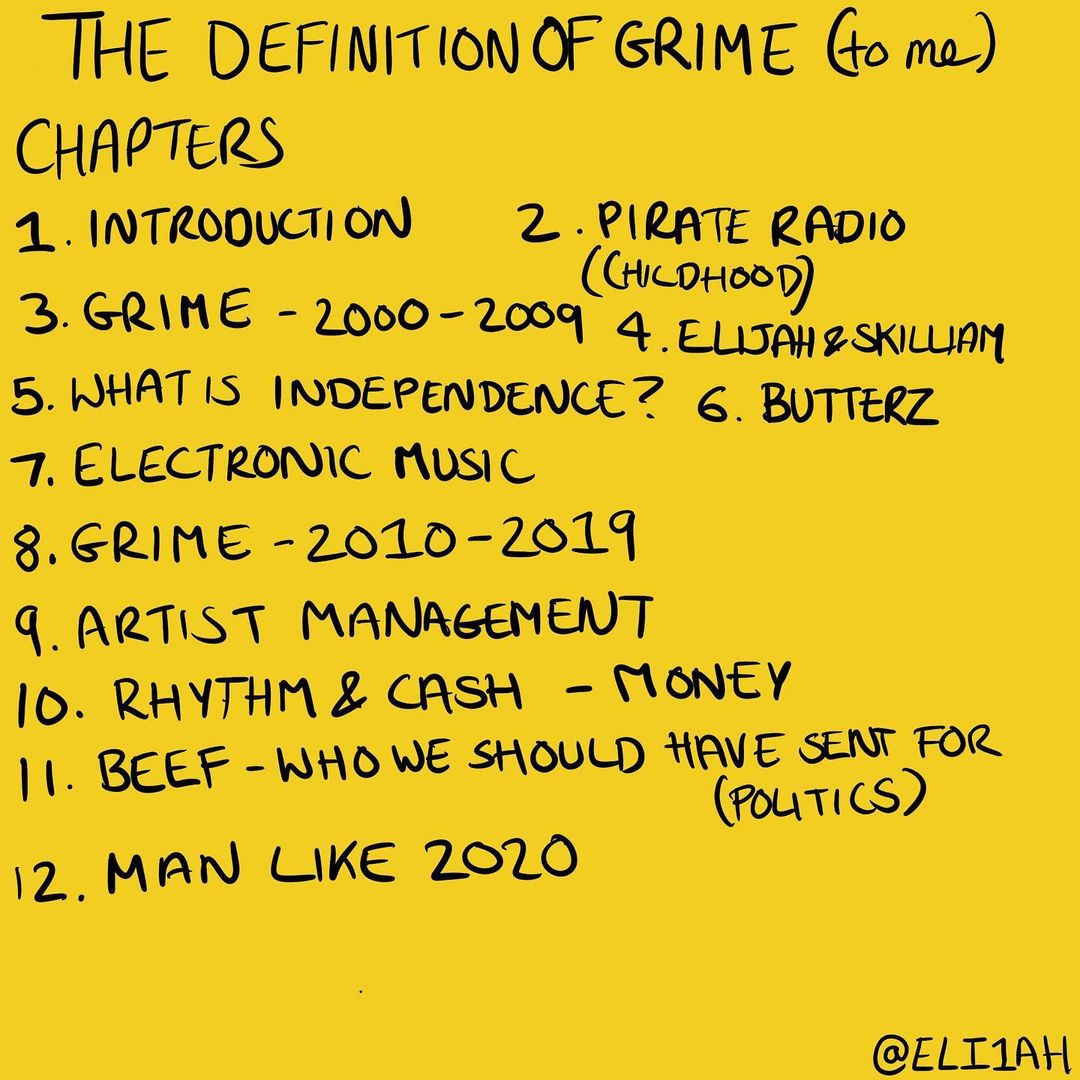 THE DEFINITION OF GRIME (to me)
CHAPTERS
1. INTRODUCTION
2. PIRATE RADIO
(CHILDHOOD)
3. GRIME - 2000-2009
4. ELIJAH & SKILLIAM
5. WHAT IS INDEPENDENCE?
6. BUTTERZ
7. ELECTRONIC MUSIC
8. GRIME - 2010-2019
9. ARTIST MANAGEMENT
10. RHYTHM & CASH - MONEY
11. BEEF - WHO WE SHOULD HAVE SENT FOR
(POLITICS)
12. MAN LIKE 2020
@ELI1AH